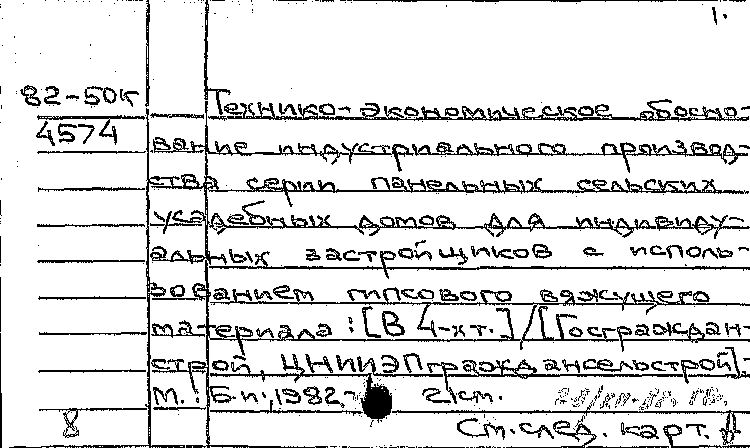 1.
82-50к Технико-экономическое обосно-
4574
вание индустриального производ-
ства серии панельных сельских
усадебных домов для индивиду-
альных застройщиков с исполь-
зованием гипсового вяжущего
материала : [В 4-х т.] / [Госграждан-
строй, ЦНИИЭПграждансельстрой].-
М. : Б.и., 1982.- 2 см.
8 См. след. карт.